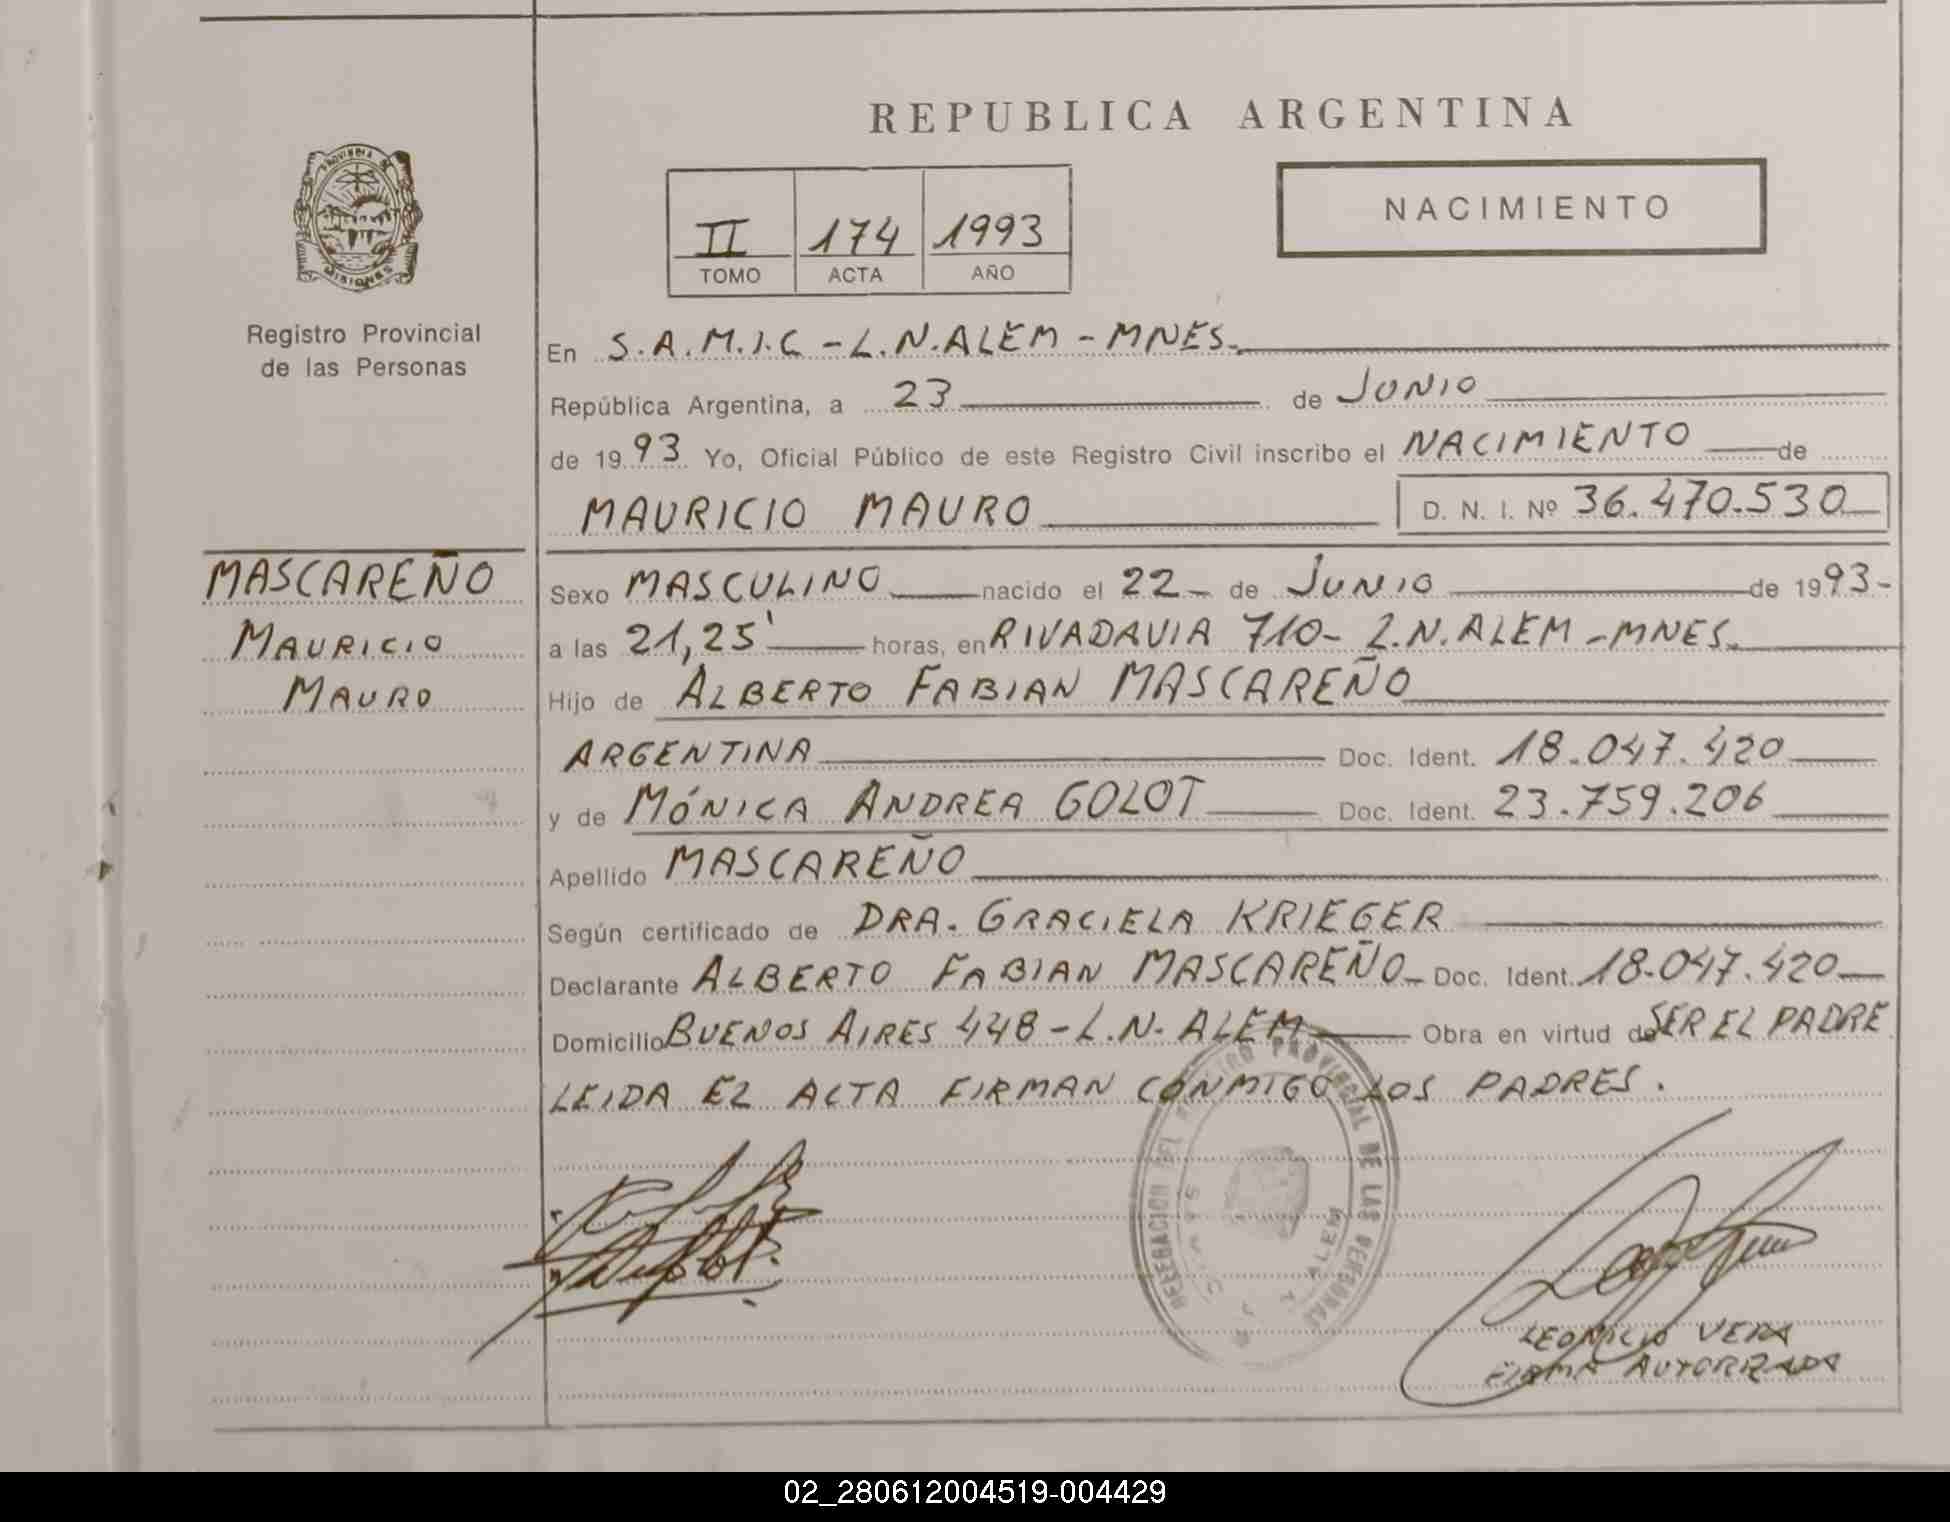 REPUBLICA ARGENTINA
PROVINCIA DE
MISIONES
Registro Provincial
de las Personas
II 174 1993
TOMO ACTA AÑO
NACIMIENTO
En S.A.M.I.C - L.N.ALEM - MNES.
República Argentina, a 23 de JUNIO
de 1993 Yo, Oficial Público de este Registro Civil inscribo el NACIMIENTO de
MAURICIO MAURO D. N. I. Nº 36.470.530
MASCAREÑO
MAURICIO
MAURO
Sexo MASCULINO nacido el 22 - de JUNIO de 1993-
a las 21,25' horas, en RIVADAVIA 710- L.N.ALEM - MNES.
Hijo de ALBERTO FABIAN MASCAREÑO
ARGENTINA Doc. Ident. 18.047.420
y de MÓNICA ANDREA GOLOT Doc. Ident. 23.759.206
Apellido MASCAREÑO
Según certificado de DRA. GRACIELA KRIEGER
Declarante ALBERTO FABIAN MASCAREÑO - Doc. Ident. 18.047.420
Domicilio BUENOS AIRES 448 - L.N. ALEM Obra en virtud de SER EL PADRE
LEIDA EL ACTA FIRMAN CONMIGO LOS PADRES.
DELEGACION DEL REGISTRO PROVINCIAL DE LAS PERSONAS
ALEM
VERA
FIRMA AUTORIZADA
02_280612004519-004429